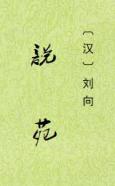 〔汉〕刘向
說苑